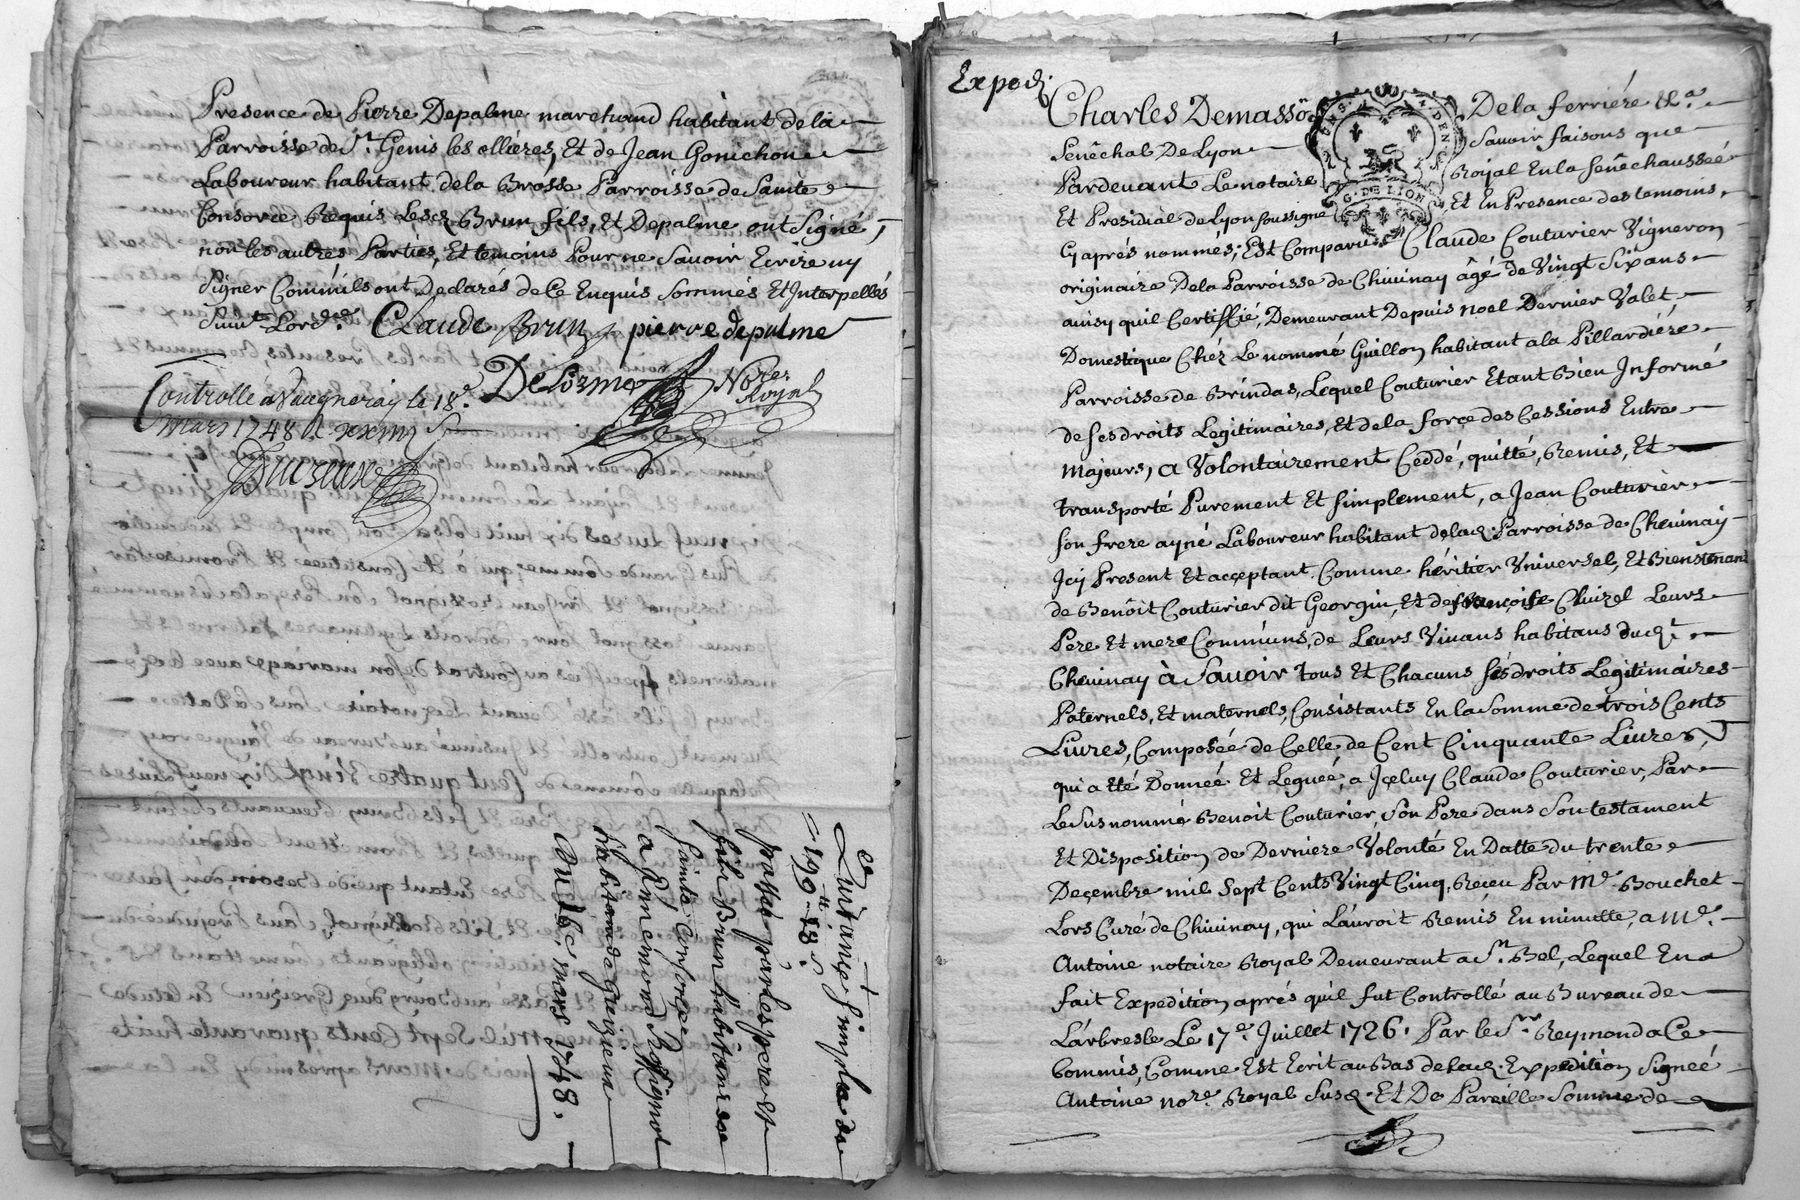 Presence de Pierre Depalme marchand habitant de la
Parroisse de St. Genis les ollieres, Et de Jean Gonichon
Laboureur habitant de la Brosse Parroisse de Sainte
Consorce Requis Lesd. Brun fils, Et Depalme ont Signé,
non les autres Parties, Et temoins Pour ne Savoir Ecrire ny
Signer Comm'ils ont Declarés de Ce Enquis Sommés Et Interpellés
Suivt. Lord.ce Claude Brun pierre depalme
Delorme No.re Royal
Controllé a Vaugneray le 18.e
Mars 1748
Quittance simple de
199 tt 18 s
passée par les pere et
fils Brun habitans de
Sainte Consorce
a Annemond Rossignol
habitant de Grezieu
Du 16.e mars 1748.
Exped.
Charles Demasso De la ferriére &.a
Senêchal De Lyon Savoir faisons que
Pardevant Le notaire Royal En la Senêchaussée
Et Presidial de Lyon soussigné, Et En Presence des temoins,
Cy aprés nommés; Est Comparu Claude Couturier Vigneron
originaire De la Parroisse de Chivinay âgé de Vingt Six ans
ainsy quil Certiffié, Demeurant Depuis noel Dernier Valet
Domestique Chéz Le nommé Guillon habitant a la Pillardiére
Parroisse de Brindas, Lequel Couturier Etant Bien Informé
de ses droits Legitimaires, Et de la force des Cessions Entre
majeurs, a Volontairement Ceddé, quitté, Remis, Et
transporté Purement Et simplement, a Jean Couturier
son frere ayné Laboureur habitant de lad. Parroisse de Chevinay
Icy Present Et acçeptant Comme héritier Vniversel, Et Bienstenant
de Benôit Couturier dit Georgin, Et de françoise Chuzel Leurs
Pere Et mere Communs, de Leurs Vivans habitans dud.t
Chevinay à Savoir tous Et Chacuns ses droits Legitimaires
Paternels, Et maternels, Consistants En la Somme de trois Cents
Livres, Composée de Celle de Cent Cinquante Livres,
qui a Eté Donnée Et Leguée, a Içeluy Claude Couturier, Par
Le Susnommé Benoit Couturier, Son Pere dans Son testament
Et Disposition de Derniere Volonté En Datte du trente
Deçembre mil Sept Cents Vingt Cinq, Receu Par M.e Bouchet
Lors Curé de Chivinay, qui L'auroit Remis En minutte, a M.e
Antoine notaire Royal Demeurant a St. Bel, Lequel En a
fait Expedition aprés quil fut Controllé au Bureau de
L'arbresle Le 17.e Juillet 1726. Par le Sr. Reymond a Ce
Commis, Comme Est Ecrit au Bas de Lad. Expedition Signée
Antoine no.re Royal Susd. Et De Pareille Somme de